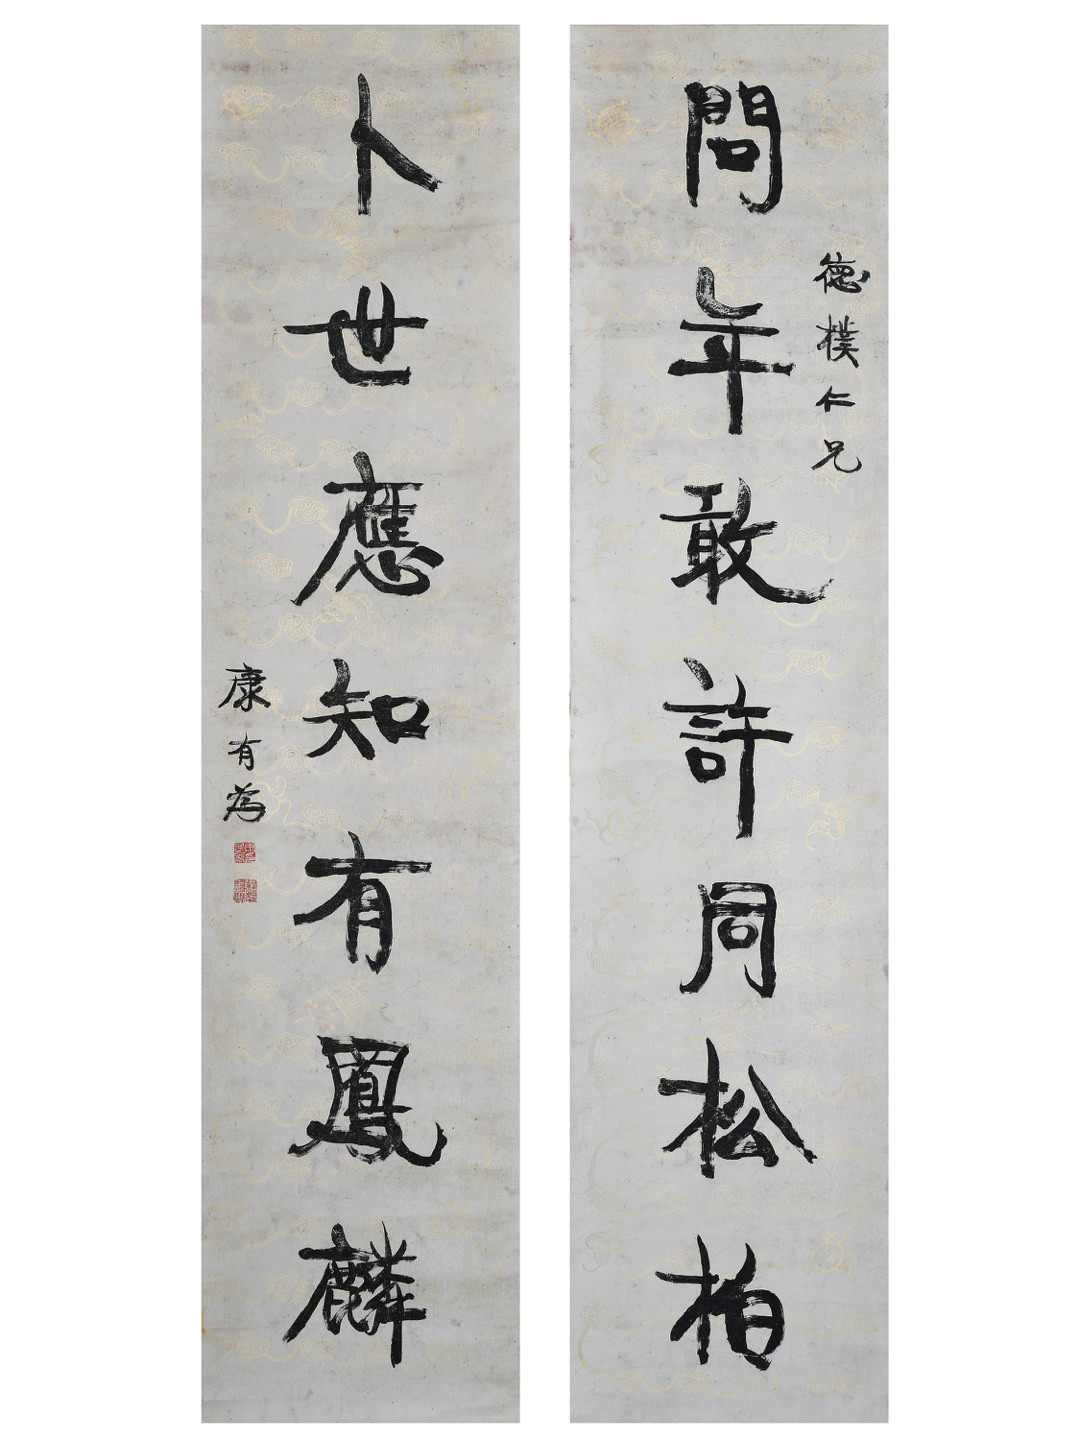 德樸仁兄
問年敢許同松柏
卜世應知有鳳麟
康有為